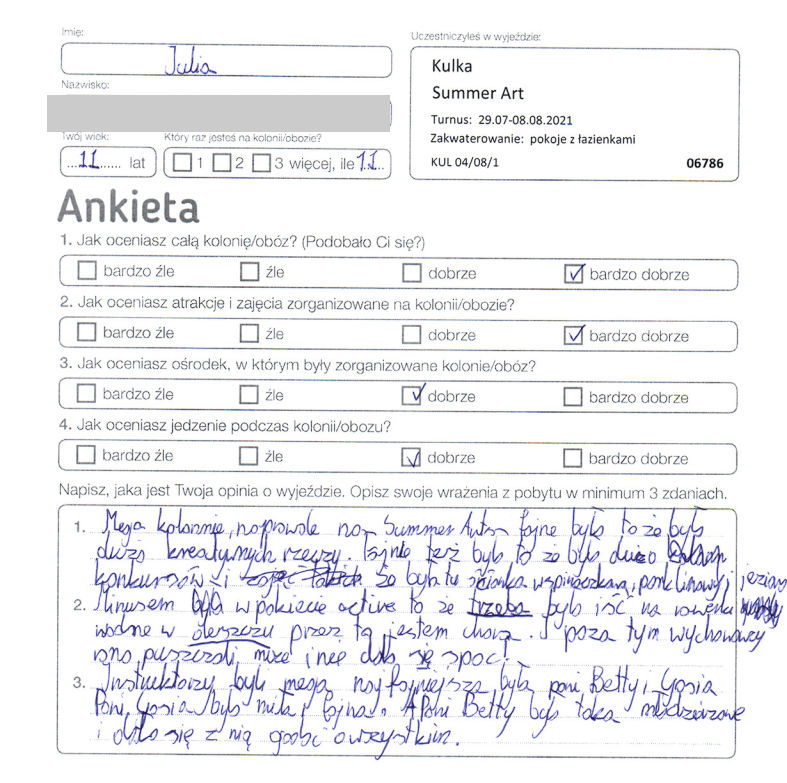 Imię:
Julia
Nazwisko:
Twój wiek:
11 lat
Który raz jesteś na kolonii/obozie?
1 2 3 więcej, ile 11
Uczestniczyłeś w wyjeździe:
Kulka
Summer Art
Turnus: 29.07-08.08.2021
Zakwaterowanie: pokoje z łazienkami
KUL 04/08/1 06786
Ankieta
1. Jak oceniasz całą kolonię/obóz? (Podobało Ci się?)
bardzo źle źle dobrze bardzo dobrze
2. Jak oceniasz atrakcje i zajęcia zorganizowane na kolonii/obozie?
bardzo źle źle dobrze bardzo dobrze
3. Jak oceniasz ośrodek, w którym były zorganizowane kolonie/obóz?
bardzo źle źle dobrze bardzo dobrze
4. Jak oceniasz jedzenie podczas kolonii/obozu?
bardzo źle źle dobrze bardzo dobrze
Napisz, jaka jest Twoja opinia o wyjeździe. Opisz swoje wrażenia z pobytu w minimum 3 zdaniach.
1. Mega kolonnie, naprawde na Summer Art fajne było to że było
dużo kreatywnych rzeczy. Fajnie też było to że było dużo
konkursów i że była tu ścianka wspinaczkowa, park linowy i jezioro
2. Minusem w pakiecie active to że trzeba było iść na rowerki
wodne w deszczu przez to jestem chora. I poza tym wychowawcy
rano puszczali muze i nie dało się spać!
3. Instruktorzy byli mega najfajniejsza była pani Betty i Gosia
Pani Gosia była miła i fajna. A Pani Betty była taka młodzieżowa
i dało się z nią gadać o wszystkim.